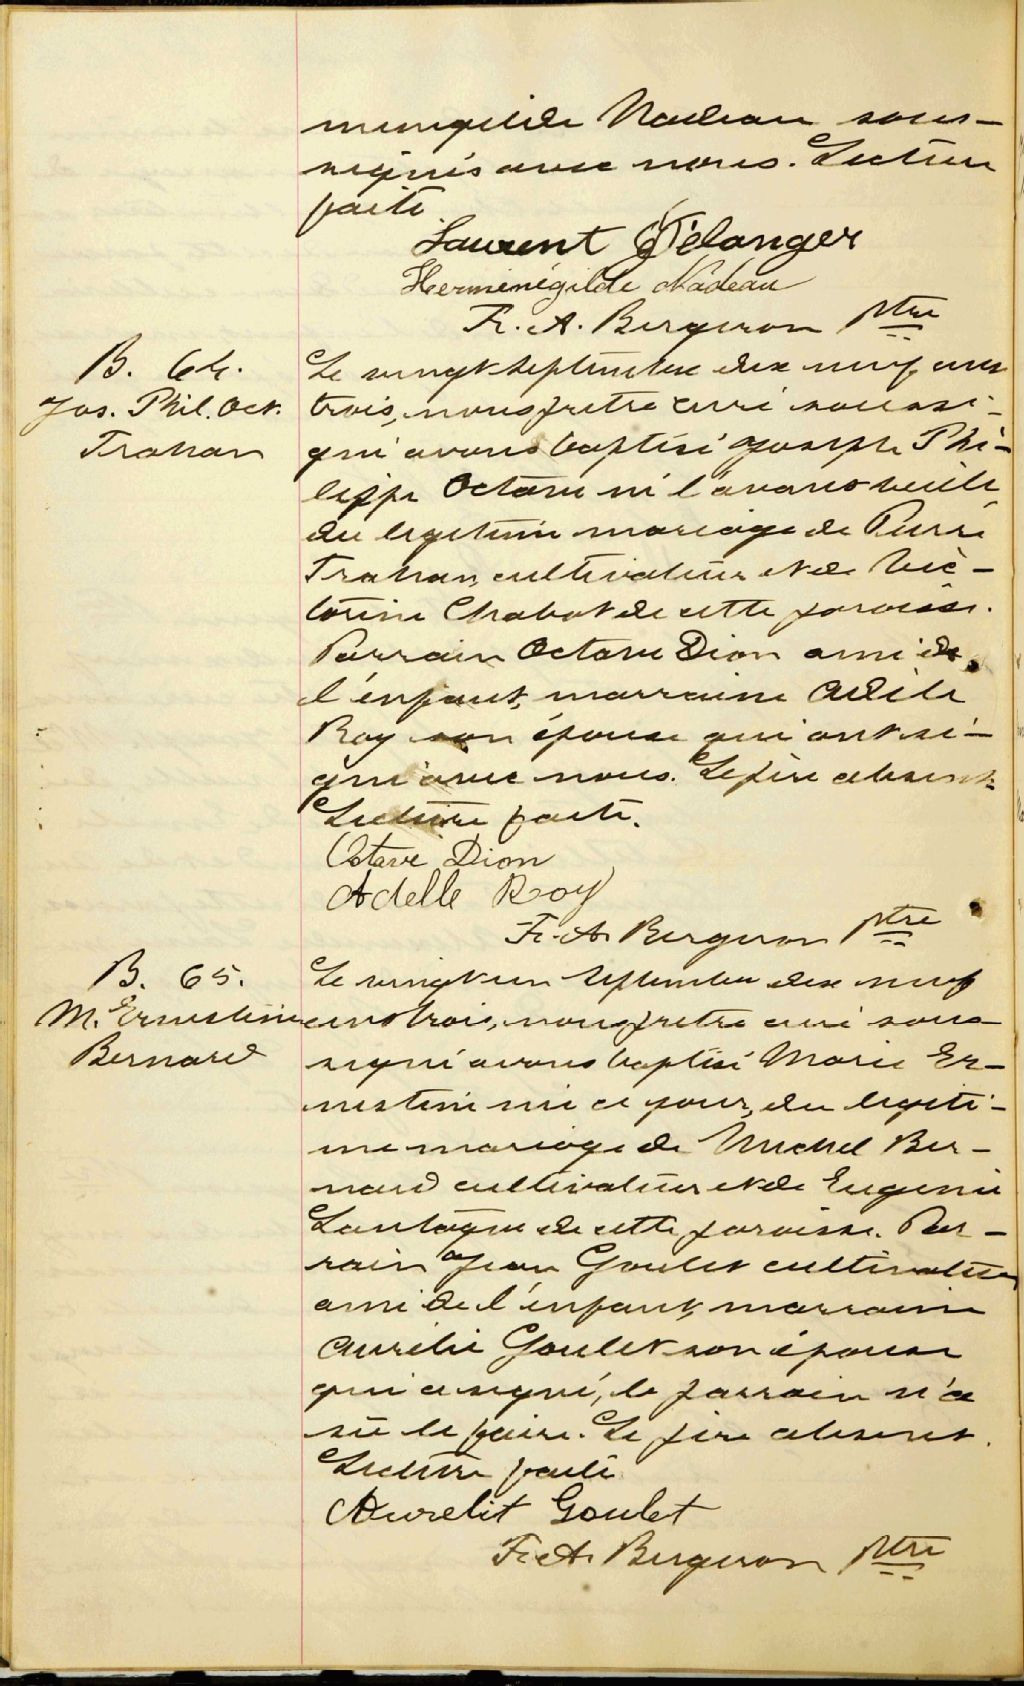 menegilde Nadeau sous-
signés avec nous. Lecture
faite.
Laurent Bélanger
Herménégilde Nadeau
Fr. A. Bergeron Ptre
B. 64.
Jos. Phil. Oct.
Trahan
Le vingt septembre dix neuf cent
trois, nous prêtre curé soussi-
gné avons baptisé Joseph Phi-
lippe Octave né l'avant veille
du légitime mariage de Pierre
Trahan, cultivateur et de Vic-
torine Chabot de cette paroisse.
Parrain Octave Dion ami de
l'enfant, marraine Adèle
Roy son épouse qui ont si-
gné avec nous. Le père absent.
Lecture faite.
Octave Dion
Adelle Roy
Fr. A. Bergeron Ptre
B. 65.
M. Ernestine
Bernard
Le vingt un septembre dix neuf
cent trois, nous prêtre curé sous-
signé avons baptisé Marie Er-
nestine née ce jour, du légiti-
me mariage de Michel Ber-
nard cultivateur et de Eugénie
Lantagne de cette paroisse. Par-
rain Jean Goulet cultivateur
ami de l'enfant, marraine
Aurélie Goulet son épouse
qui a signé, le parrain n'a
sû le faire. Le père absent.
Lecture faite
Aurelit Goulet
Fr. A. Bergeron Ptre